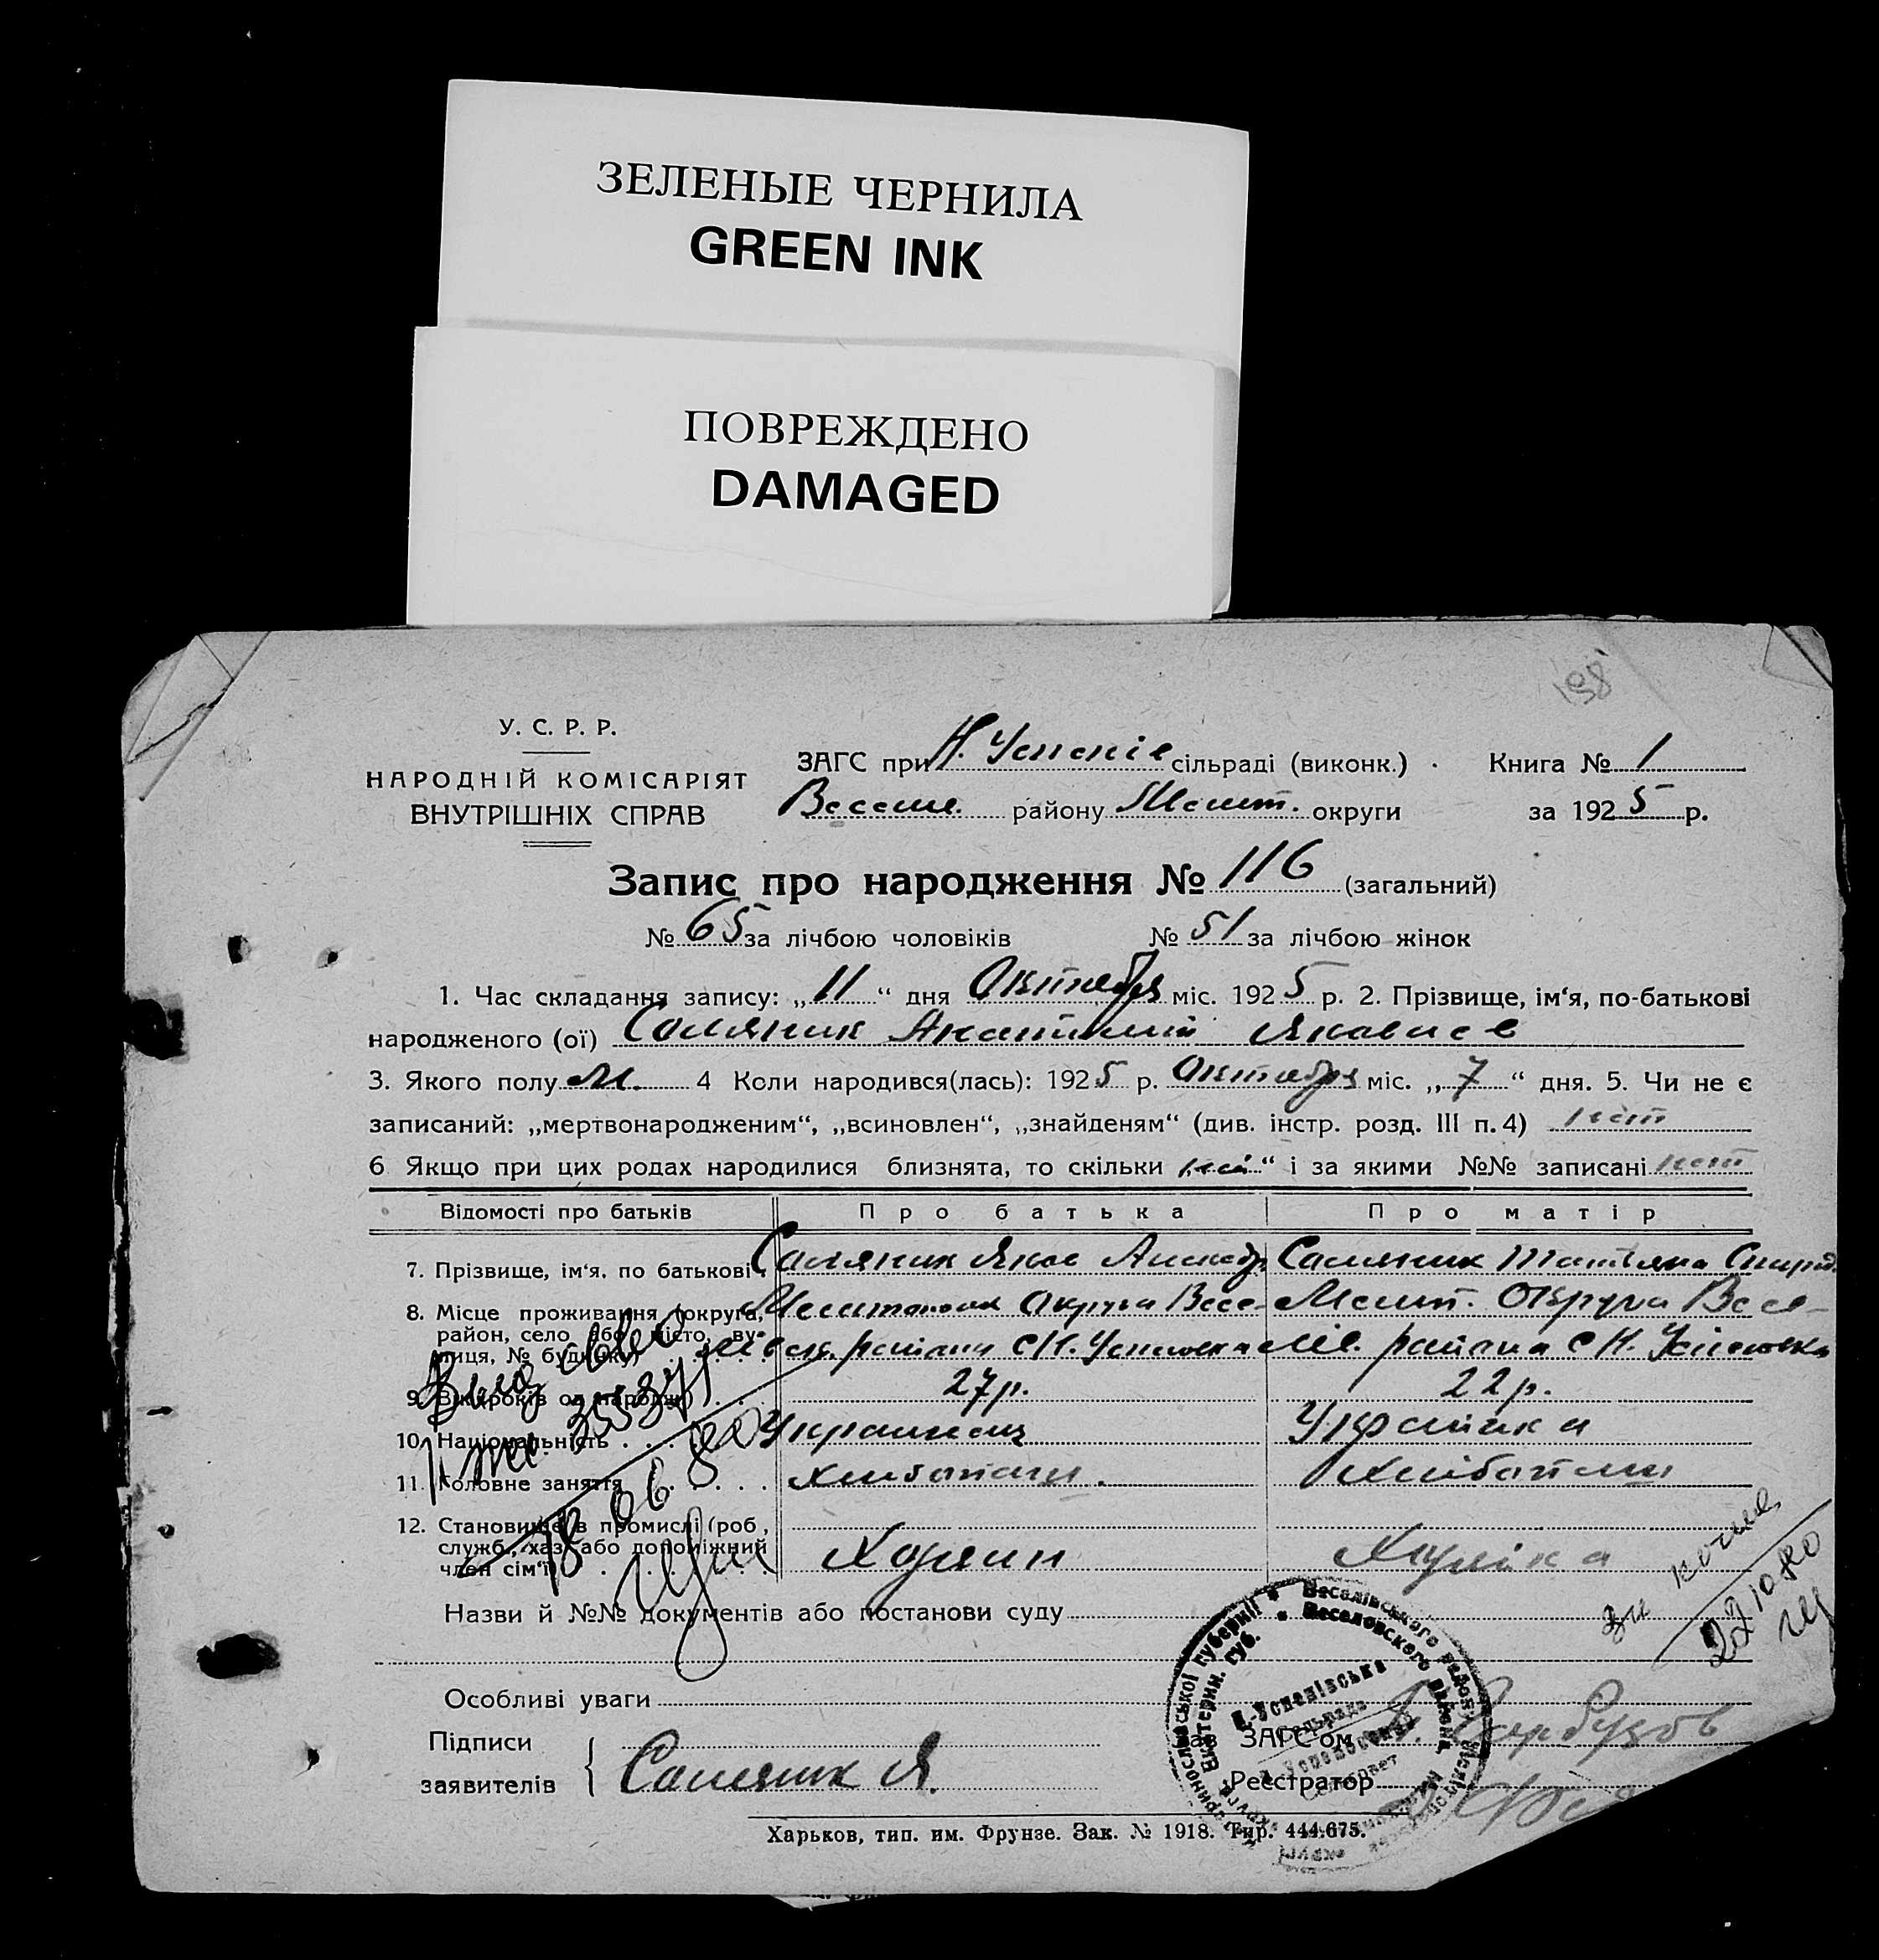 ЗЕЛЕНЫЕ ЧЕРНИЛА
GREEN INK
ПОВРЕЖДЕНО
DAMAGED
198
У. С. Р. Р.
НАРОДНІЙ КОМІСАРІЯТ
ВНУТРІШНІХ СПРАВ
ЗАГС при Н. Успеніе сільраді (виконк.)
Весел. району Меліт. округи
Книга № 1
за 1925 р.
Запис про народження № 116 (загальний)
№ 65 за лічбою чоловіків № 51 за лічбою жінок
1. Час складання запису: „11“ дня Октября міс. 1925 р. 2. Прізвище, ім‘я, по-батькові
народженого (ої) Саляник
3. Якого полу м. 4 Коли народився(лась): 1925 р. Октября міс. „7“ дня. 5. Чи не є
записаний: „мертвонародженим“, „всиновлен“, „знайденям“ (див. інстр. розд. III п. 4) нет
6 Якщо при цих родах народилися близнята, то скільки „ “ і за якими №№ записані нет
Відомості про батьків Про батька Про матір
7. Прізвище, ім‘я, по батькові Саляник Яков Саляник Татьяна Спирид.
8. Місце проживання (округа, район, село або місто, вулиця, № будинку) Округа Весе- Меліт. Округи Весе-
района с Н. Успеновка района с Н. Успеновка
9. Вік (років од народж.) 27 р. 22 р.
10. Національність Украинец Украінка
11. Головне заняття
12. Становище в промислі (роб, служб., хаз. або допоміжний член сім‘ї) Хозяин Хозяйка
18 06 80
22 10 80
Назви й №№ документів або постанови суду
Особливі уваги
Підписи заявителів Саляник Я.
Зав. ЗАГС‘ом
Реєстратор
Веселівського
Веселовского района
Н.-Успенівська
Сільрада
Сельсовет
Харьков, тип. им. Фрунзе. Зак. № 1918. Тир. 444.675.